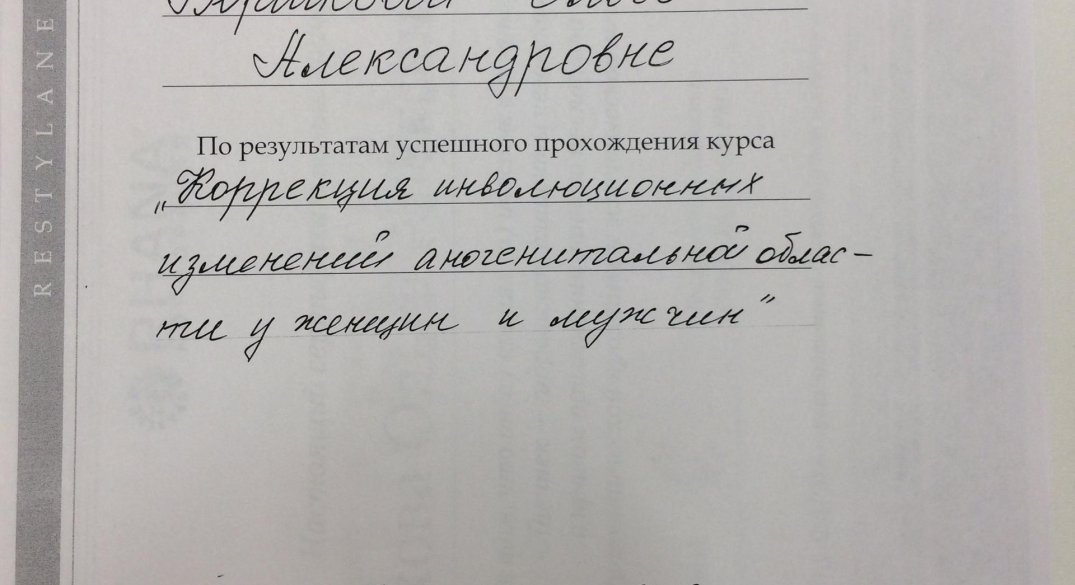 RESTYLANE
Александровне
По результатам успешного прохождения курса
„Коррекция инволюционных
изменений аногенитальной облас-
ти у женщин и мужчин”